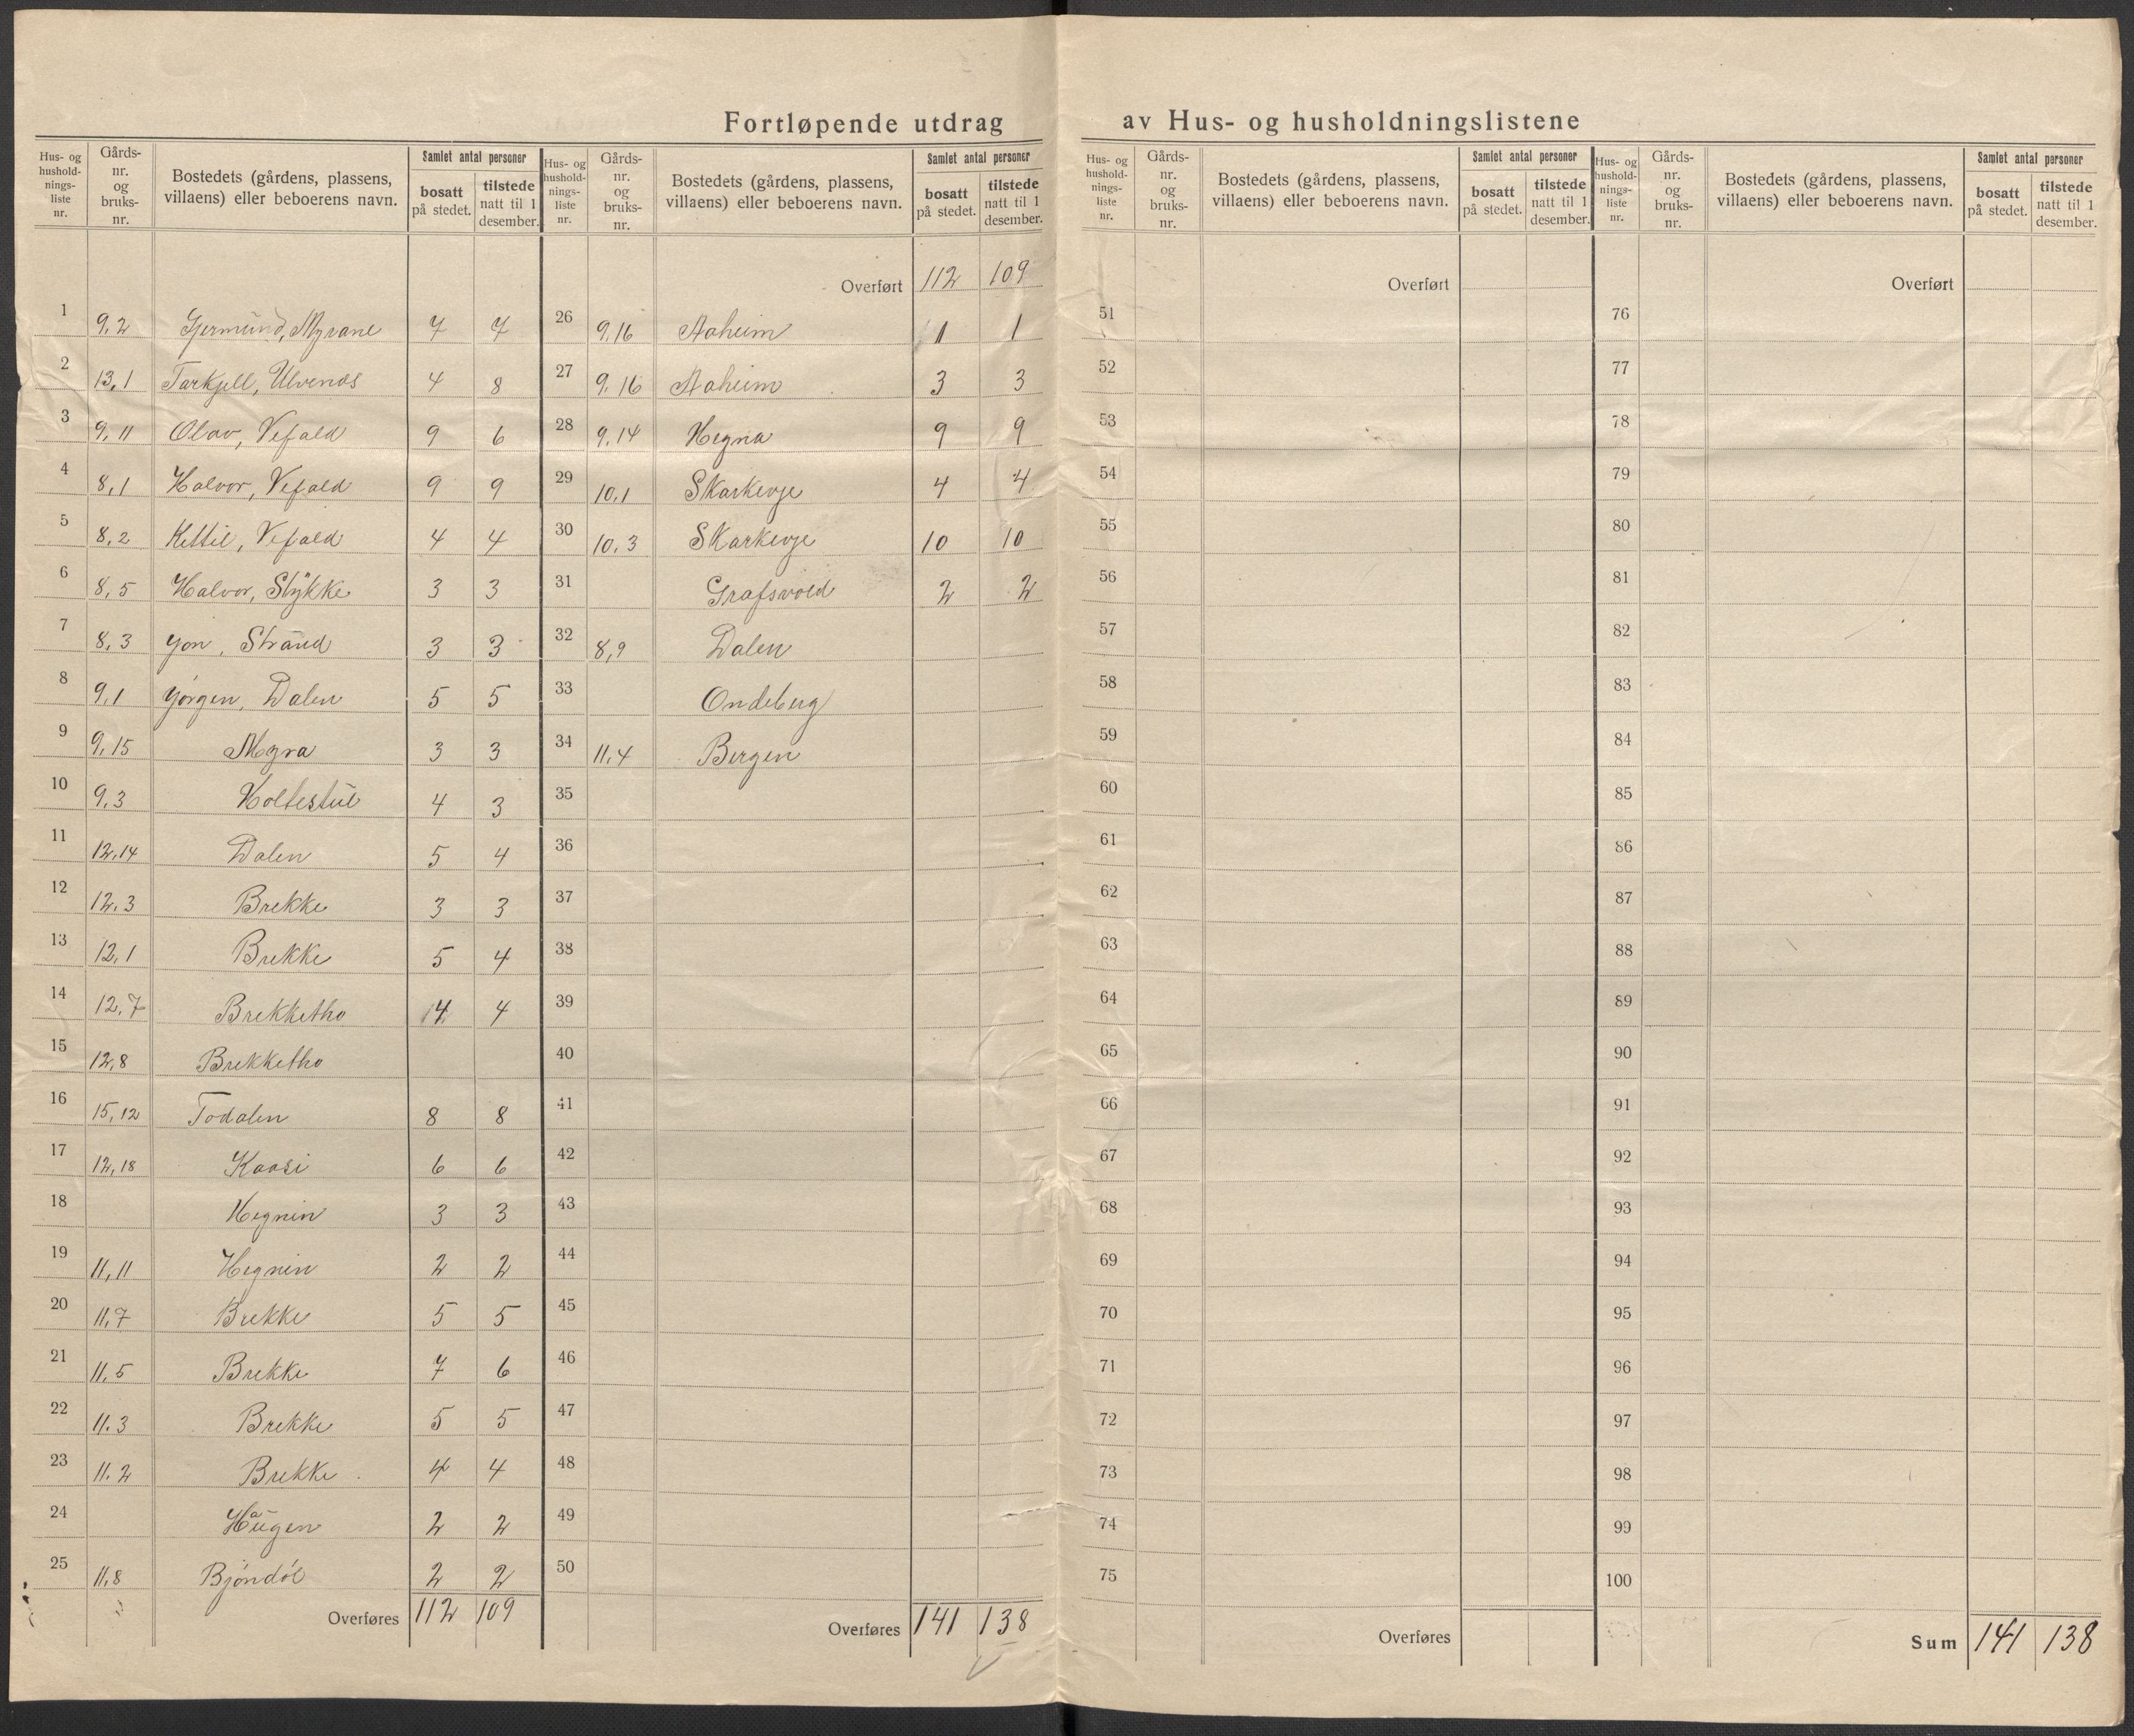 Fortløpende utdrag av Hus- og husholdningslistene
Hus- og hushold-nings-liste nr. Gårds-nr. og bruks-nr. Bostedets (gårdens, plassens, villaens) eller beboerens navn. Samlet antal personer bosatt på stedet. tilstede natt til 1 desember.
1 9,2 Gjermund, Myrane 7 7
2 13,1 Tarkjell, Ulvenes 4 8
3 9,11 Olav, Vefald 9 6
4 8,1 Halvor, Vefald 9 9
5 8,2 Kittil, Vefald 4 4
6 8,5 Halvor, Stykke 3 3
7 8,3 Jon, Strand 3 3
8 9,1 Jørgen, Dalen 5 5
9 9,15 Myra 3 3
10 9,3 Holtestul 4 3
11 12,14 Dalen 5 4
12 12,3 Brekke 3 3
13 12,1 Brekke 5 4
14 12,7 Brekketho 4 4
15 12,8 Brekketho
16 15,12 Todalen 8 8
17 12,18 Kaasi 6 6
18 Hegnin 3 3
19 11,11 Hegnin 2 2
20 11,7 Brekke 5 5
21 11,5 Brekke 7 6
22 11.3 Brekke 5 5
23 11.2 Brekke 4 4
24 Haugen 2 2
25 11,8 Bjøndøl 2 2
Overføres 112 109
Hus- og hushold-nings-liste nr. Gårds-nr. og bruks-nr. Bostedets (gårdens, plassens, villaens) eller beboerens navn. Samlet antal personer bosatt på stedet. tilstede natt til 1 desember.
Overført 112 109
26 9,16 Aaheim 1 1
27 9,16 Aaheim 3 3
28 9,14 Hegna 9 9
29 10,1 Skarkevje 4 4
30 10,3 Skarkevje 10 10
31 Grafsvold 2 2
32 8,9 Dalen
33 Ondeberg
34 11,4 Bergen
35
36
37
38
39
40
41
42
43
44
45
46
47
48
49
50
Overføres 141 138
Hus- og hushold-nings-liste nr. Gårds-nr. og bruks-nr. Bostedets (gårdens, plassens, villaens) eller beboerens navn. Samlet antal personer bosatt på stedet. tilstede natt til 1 desember.
Overført
51
52
53
54
55
56
57
58
59
60
61
62
63
64
65
66
67
68
69
70
71
72
73
74
75
Overføres
Hus- og hushold-nings-liste nr. Gårds-nr. og bruks-nr. Bostedets (gårdens, plassens, villaens) eller beboerens navn. Samlet antal personer bosatt på stedet. tilstede natt til 1 desember.
Overført
76
77
78
79
80
81
82
83
84
85
86
87
88
89
90
91
92
93
94
95
96
97
98
99
100
Sum 141 138